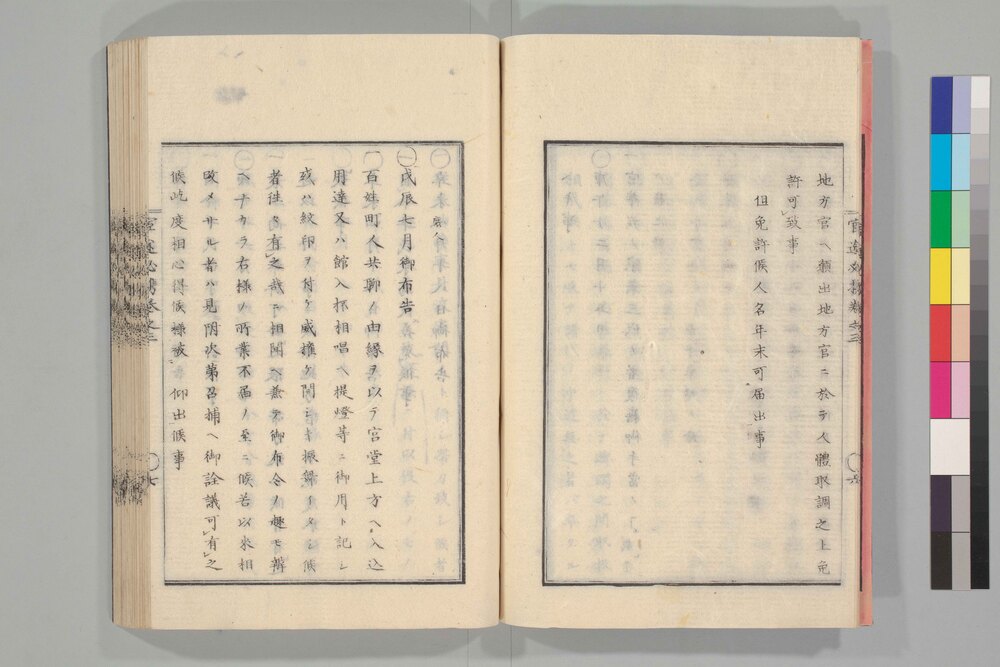 地方官ヘ願出地方官ニ於テ人體取調之上免
許可致事
但免許候人名年末可届出事
六
一戊辰七月御布告
一百姓町人共聊ノ由縁ヲ以テ宮堂上方ヘ入込
用達又ハ館入抔相唱ヘ提燈等ニ御用ト記シ
或ハ紋印ヲ付ケ威權ケ間シキ振舞イタシ候
者往々有之哉ニ相聞ヘ兼テ御布令ノ趣モ辨
ヘナカラ右様ノ所業不届ノ至ニ候若以来相
改メサル者ハ見附次第召捕ヘ御詮議可有之
候屹度相心得候様被 仰出候事
七